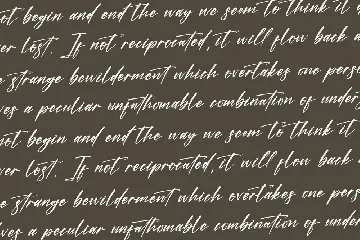 not begin and end the way we seem to think it
ver lost. If not reciprocated, it will flow back
e strange bewilderment which overtakes one pers
ves a peculiar unfathomable combination of under
not begin and end the way we seem to think it
ver lost. If not reciprocated, it will flow back
e strange bewilderment which overtakes one pers
ves a peculiar unfathomable combination of under